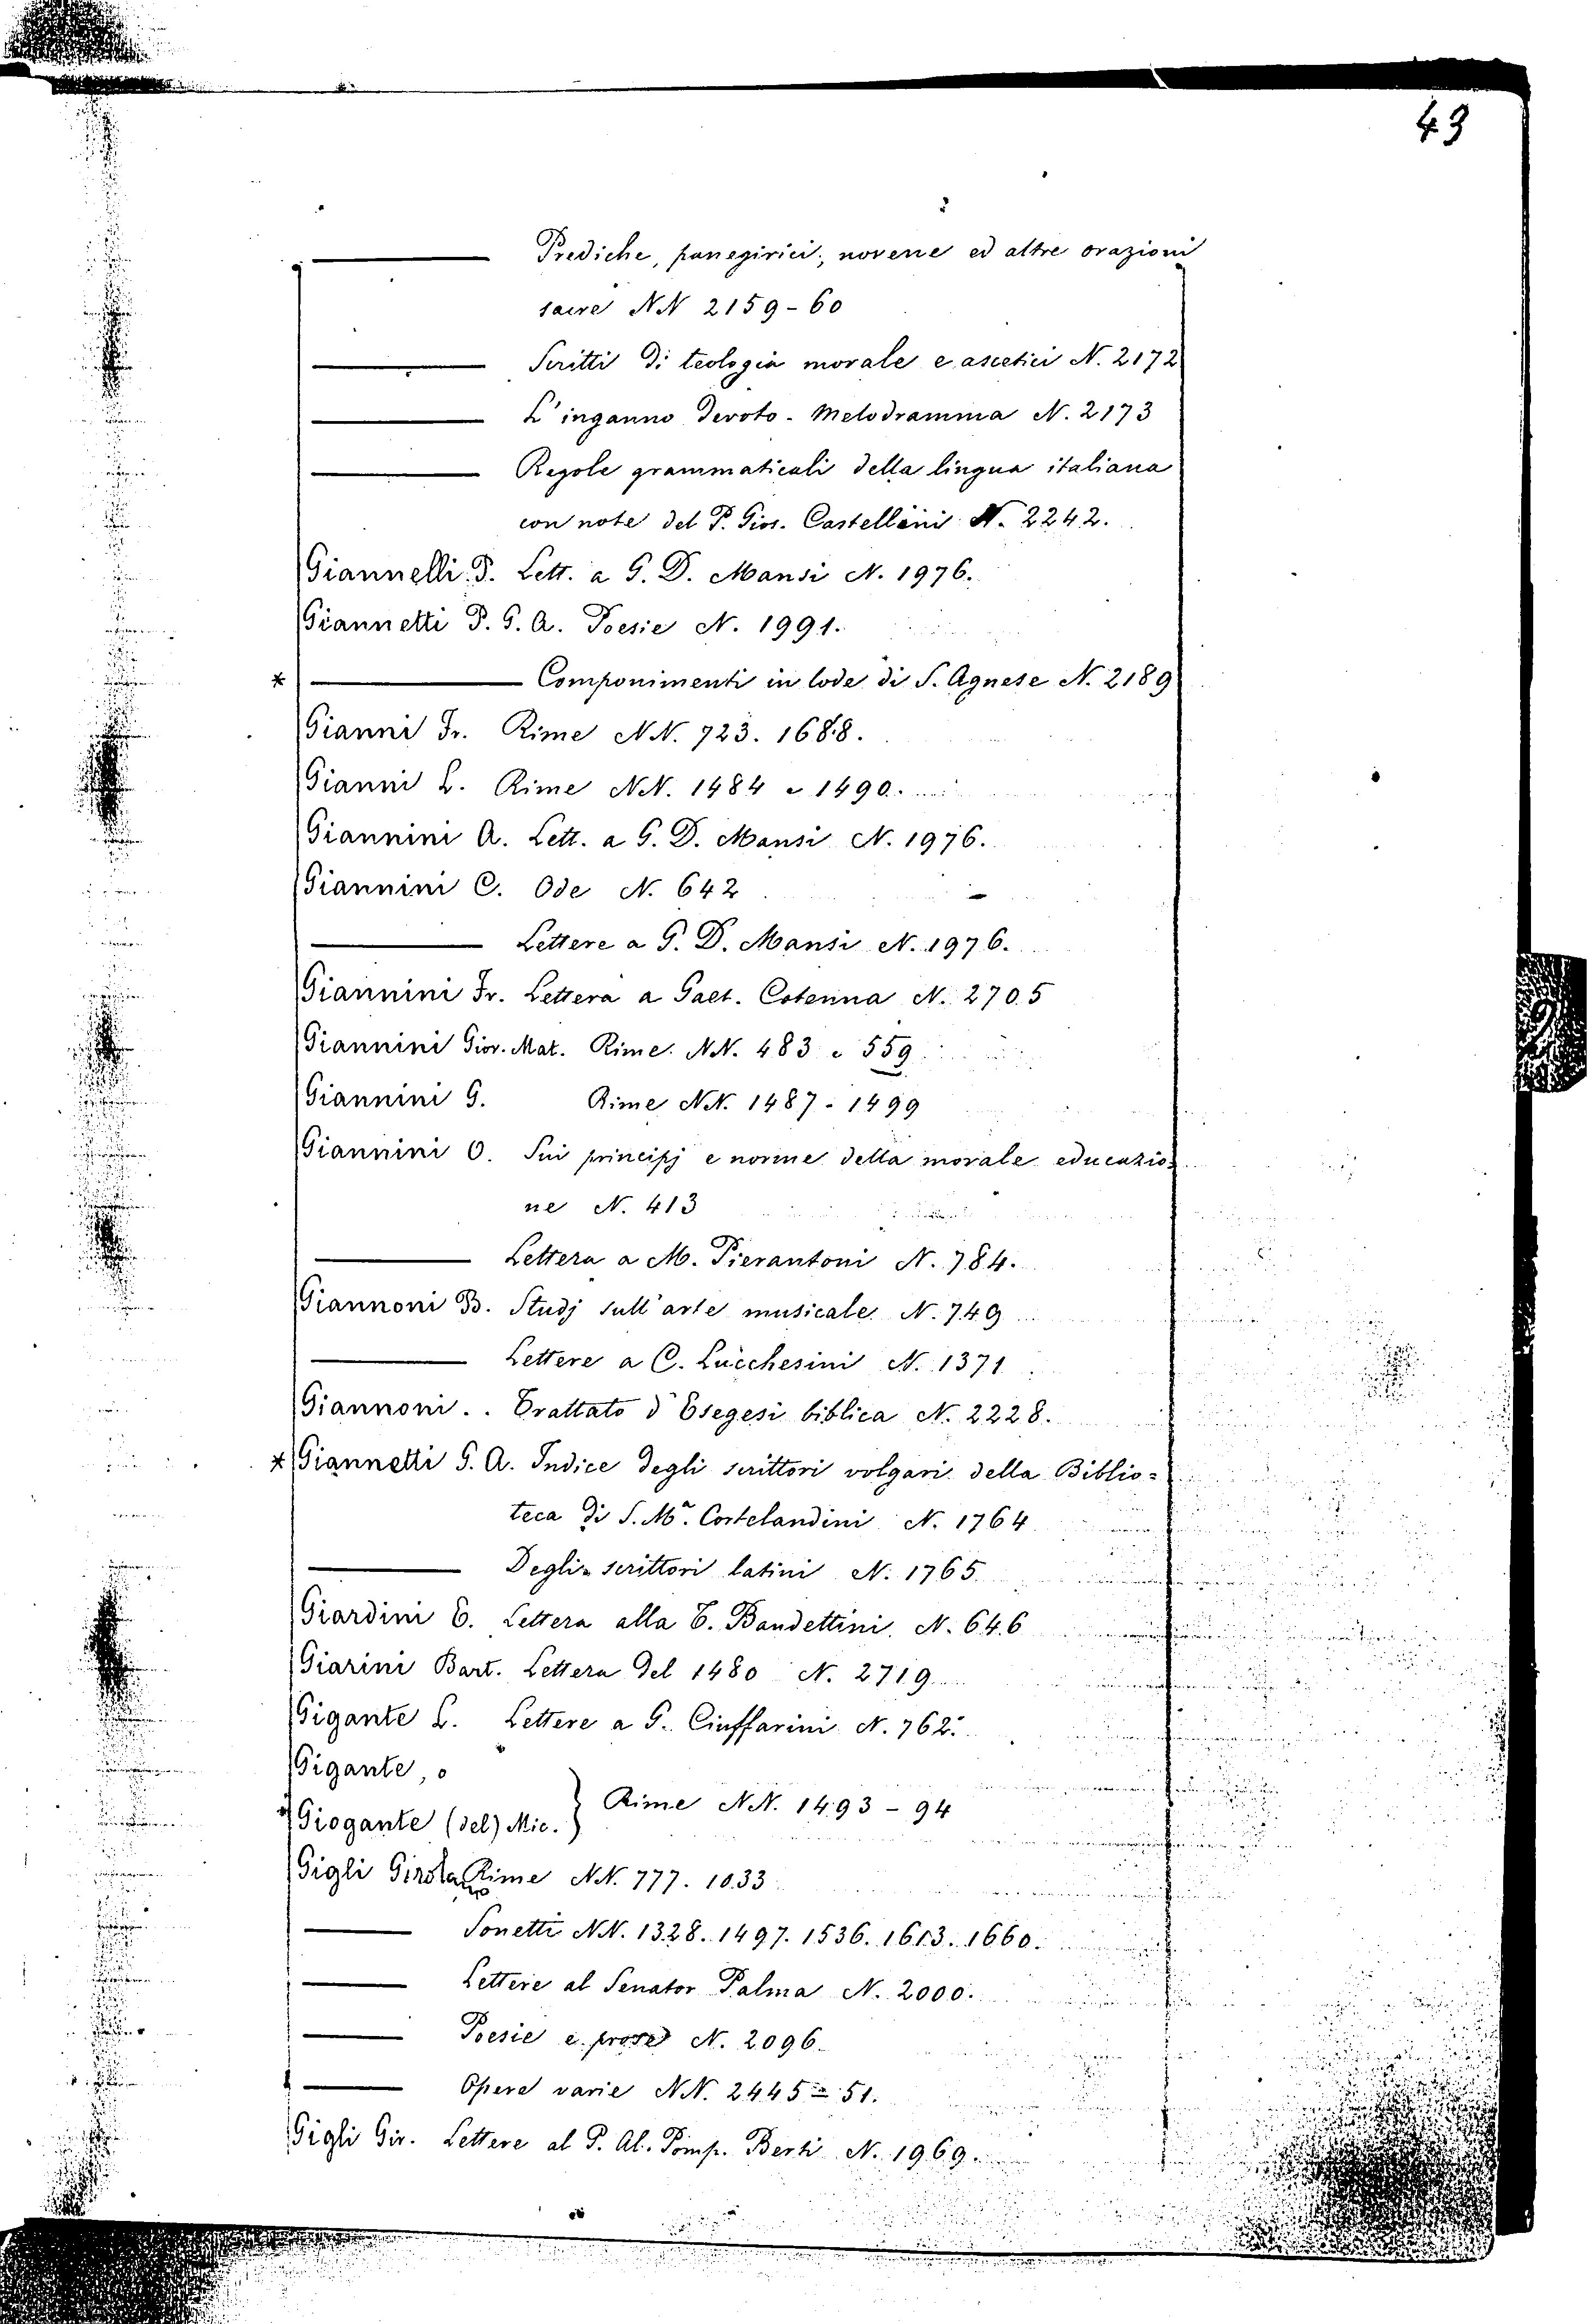 43
——— Prediche, panegirici, novene ed altre orazioni
sacre NN 2159-60
——— Scritti di teologia morale e ascetici N. 2172
——— L'inganno devoto - Melodramma N. 2173
——— Regole grammaticali della lingua italiana
con note del P. Gios. Castellini N. 2242.
Giannelli P. Lett. a G. D. Mansi N. 1976.
Giannetti P. G. A. Poesie N. 1991.
* ——— Componimenti in lode di S. Agnese N. 2189
Gianni Fr. Rime NN. 723. 1688.
Gianni L. Rime NN. 1484 e 1490.
Giannini A. Lett. a G. D. Mansi N. 1976.
Giannini C. Ode N. 642
——— Lettere a G. D. Mansi N. 1976.
Giannini Fr. Lettera a Gaet. Cotenna N. 2705
Giannini Giov. Mat. Rime NN. 483 e 559
Giannini G. Rime NN. 1487 - 1499
Giannini O. Sui principj e norme della morale educazio-
ne N. 413
——— Lettera a M. Pierantoni N. 784.
Giannoni B. Studj sull'arte musicale N. 749
——— Lettere a C. Lucchesini N. 1371
Giannoni . . Trattato d'Esegesi biblica N. 2228.
* Giannetti G. A. Indice degli scrittori volgari della Biblio=
teca di S. Mª. Cortelandini N. 1764
——— Degli scrittori latini N. 1765
Giardini E. Lettera alla T. Bandettini N. 646
Giarini Bart. Lettera del 1480 N. 2719
Gigante L. Lettere a G. Ciuffarini N. 762.
Gigante, o
Giogante (del) Mic. } Rime NN. 1493 - 94
Gigli Girolamo Rime NN. 777. 1033
——— Sonetti NN. 1328. 1497. 1536. 1613. 1660.
——— Lettere al Senator Palma N. 2000.
——— Poesie e prose N. 2096.
——— Opere varie NN. 2445 = 51.
Gigli Gir. Lettere al P. Al. Pomp. Berti N. 1969.